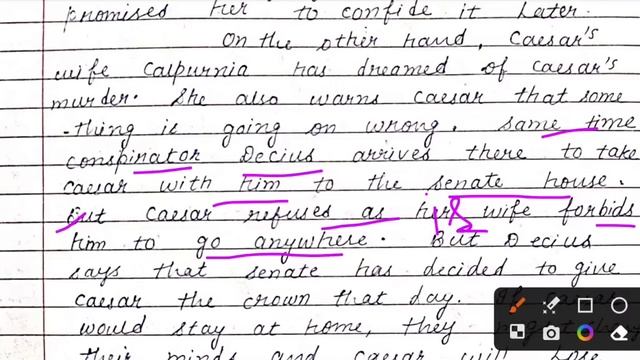 promises her to confide it later.
On the other hand, Caesar's
wife Calpurnia has dreamed of Caesar's
murder. She also warns Caesar that some
-thing is going on wrong. Same time
conspinator Decius arrives there to take
caesar with him to the senate house.
But Caesar refuses as his wife forbids
him to go anywhere. But Decius
says that senate has decided to give
caesar the crown that day. If
would stay at home, they
their minds and caesar will lose